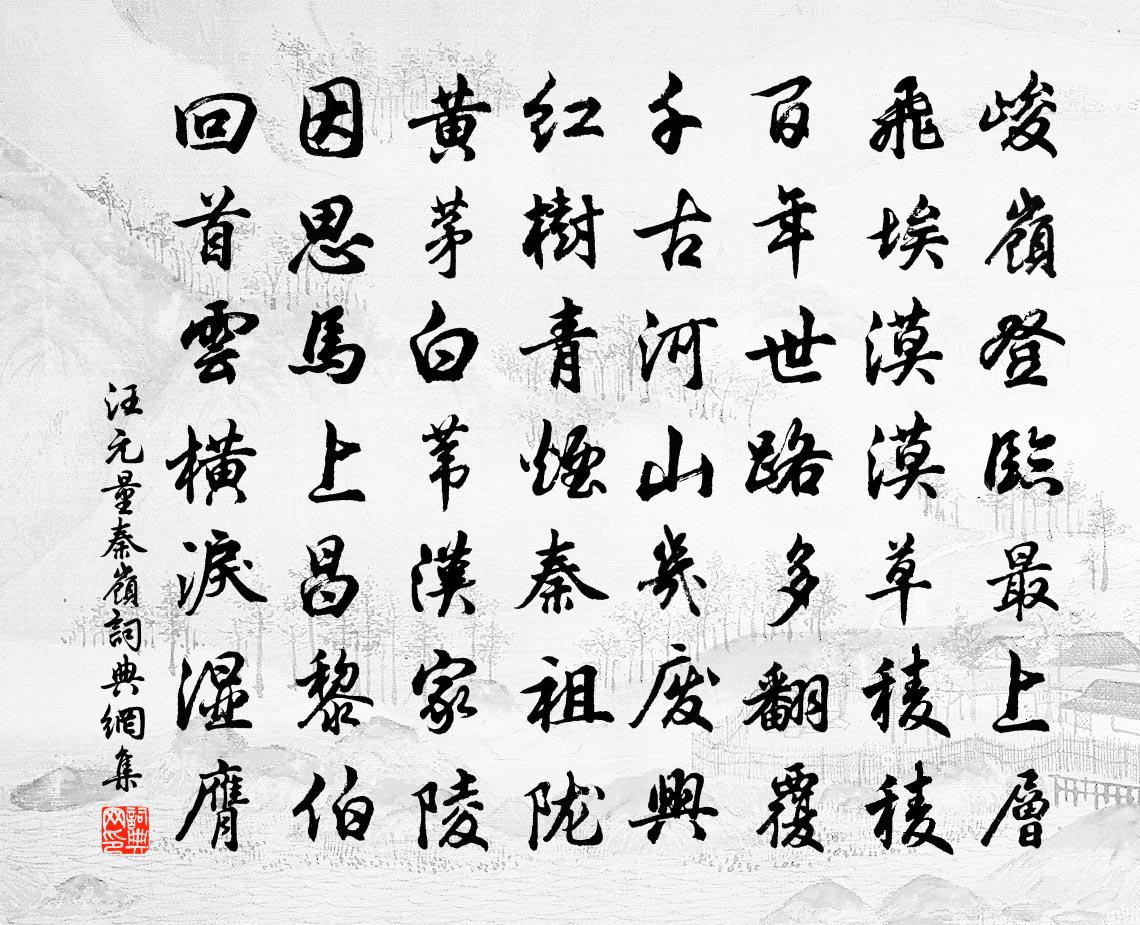 峻嶺登臨最上層
飛埃漠漠草稜稜
百年世路多翻覆
千古河山幾废興
紅樹青煙秦祖陇
黃茅白苇漢家陵
因思馬上昌黎伯
回首雲橫淚湿膺
汪元量秦嶺詞典網集
詞典网印